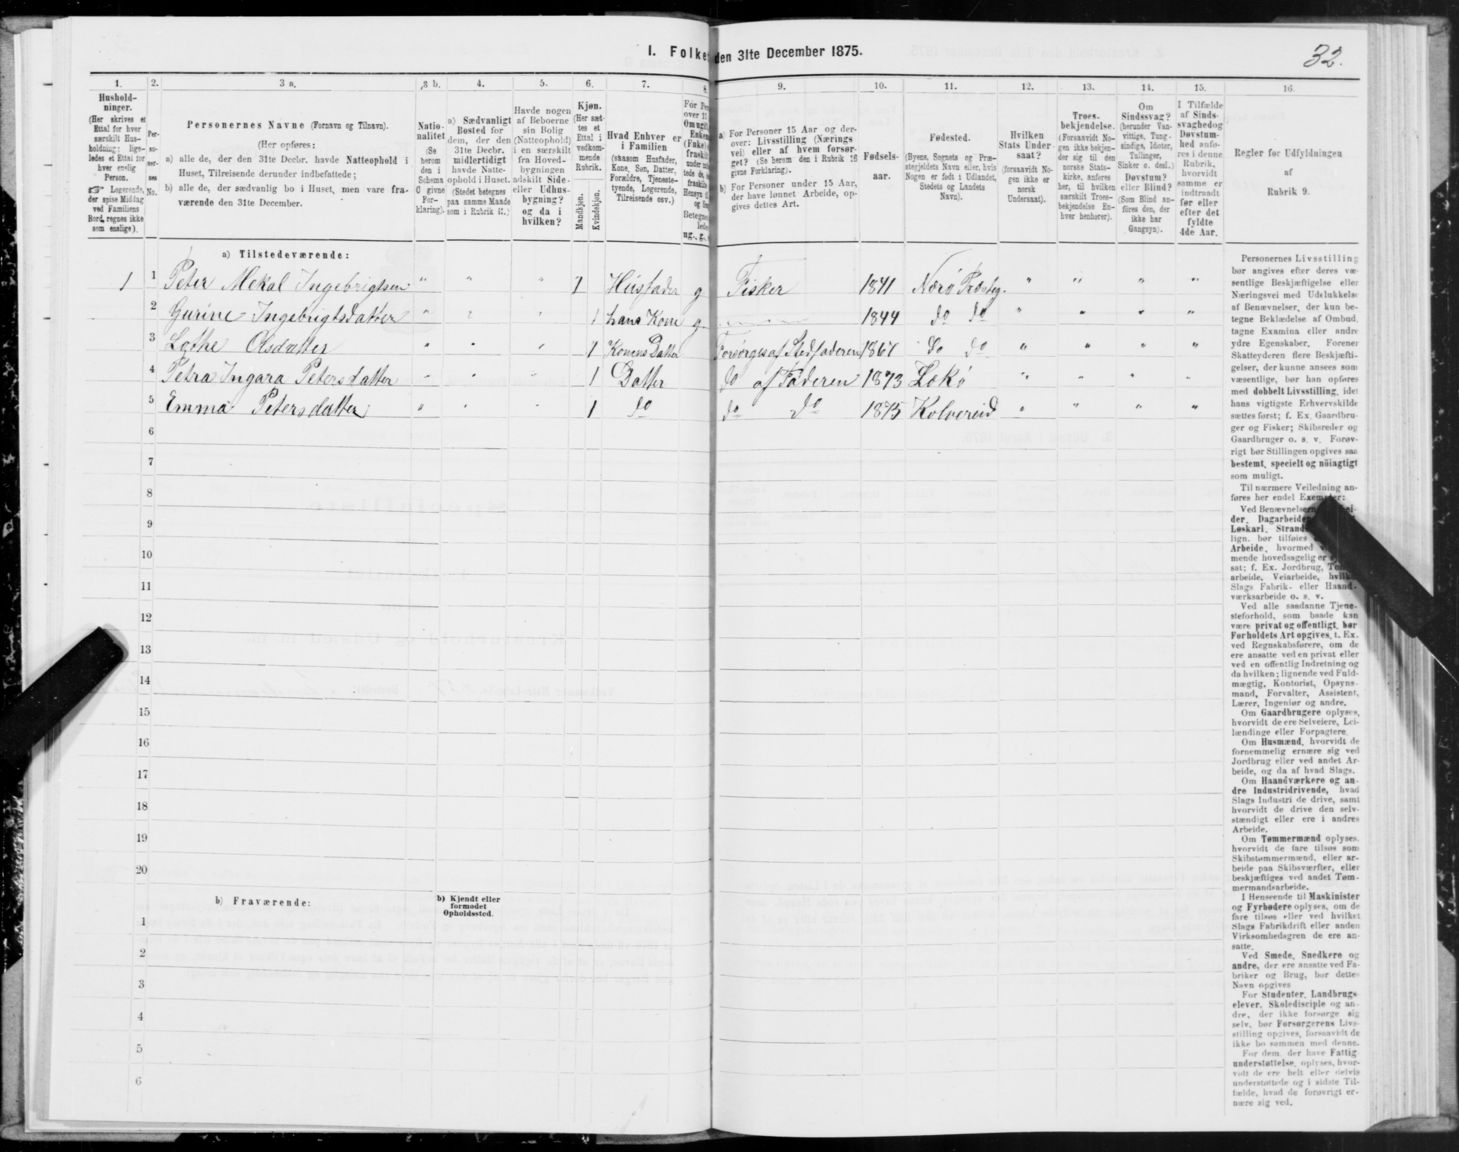 I. Folke
den 31te December 1875.
32.
1.
Hushold-
ninger.
(Her skrives et
Ettal for hver
særskilt Hus-
holdning; lige-
ledes et Ettal for
hver enslig
Person.
☞ Logerende,
der spise Middag
ved Familiens
Bord, regnes ikke
som enslige).
2.
Per-
so-
ner-
nes
No.
3 a.
Personernes Navne (Fornavn og Tilnavn).
(Her opføres:
a) alle de, der den 31te Decbr. havde Natteophold i
Huset, Tilreisende derunder indbefattede;
b) alle de, der sædvanlig bo i Huset, men vare fra-
værende den 31te December.
3 b.
Natio-
nalitet
(Se
herom
den i
Schema
O givne
For-
klaring).
4.
a) Sædvanligt
Bosted for
dem, der den
31te Decbr.
midlertidigt
havde Natte-
ophold i Huset.
(Stedet betegnes
paa samme Maade
som i Rubrik 11.)
5.
Havde nogen
af Beboerne
sin Bolig
(Natteophold)
i en særskilt
fra Hoved-
bygningen
adskilt Side-
eller Udhus-
bygning?
og da i
hvilken?
6.
Kjøn.
(Her sæt-
tes et
Ettal i
vedkom-
mende
Rubrik.
Mandkjøn.
Kvindekjøn.
7.
Hvad Enhver er
i Familien
(saasom Husfader,
Kone, Søn, Datter,
Forældre, Tjeneste-
tyende, Logerende,
Tilreisende osv.)
8.
For Pe
over 15
Om ugift,
Enken
(Enke)
fraskilt
9.
a) For Personer 15 Aar og der-
over: Livsstilling (Nærings
vei) eller af hvem forsør-
get? (Se herom den i Rubrik 16
givne Forklaring).
b) For Personer under 15 Aar,
der have lønnet Arbeide, op-
gives dettes Art.
10.
Fødsels-
aar.
11.
Fødested.
(Byens, Sognets og Præ-
stegjeldets Navn eller, hvis
Nogen er født i Udlandet,
Stedets og Landets
Navn).
12.
Hvilken
Stats Under-
saat?
(forsaavidt No-
gen ikke er
norsk
Undersaat).
13.
Troes-
bekjendelse.
(Forsaavidt No-
gen ikke bekjen-
der sig til den
norske Stats-
kirke, anføres
her, til hvilken
særskilt Troes-
bekjendelse En-
hver henhører).
14.
Om
Sindssvag?
(herunder Van-
vittige, Tung-
sindige, Idioter,
Tullinger,
Sinker o. desl.)
Døvstum?
eller Blind?
(Som Blind an-
føres den, der
ikke har
Gangsyn).
15.
I Tilfælde
af Sinds-
svaghed og
Døvstum-
hed anfø-
res i denne
Rubrik,
hvorvidt
samme er
indtraadt
før eller
efter det
fyldte
4de Aar.
16.
Regler for Udfyldningen
af
Rubrik 9.
a) Tilstedeværende:
1 1 Peter Mekal Ingebrigtsen " " " 1 Husfader g Fisker 1841 Nærø Præsteg. " " " "
2 Gurine Ingebrigtsdatter " " " 1 hans Kone g 1844 do do " " " "
3 Lethe Olsdatter " " " 1 Konens Datter Forsørges af Stedfaderen 1867 do do " " " "
4 Petra Ingara Petersdatter " " " 1 Datter do af Faderen 1873 Lekø " " " "
5 Emma Petersdatter " " " 1 do do do 1875 Kolvereid " " " "
6
7
8
9
10
11
12
13
14
15
16
17
18
19
20
b) Fraværende:
b) Kjendt eller
formodet
Opholdssted.
1
2
3
4
5
6
Personernes Livsstilling
bør angives efter deres væ-
sentlige Beskjæftigelse eller
Næringsvei med Udelukkelse
af Benævnelser, der kun be-
tegne Beklædelse af Ombud,
tagne Examina eller andre
ydre Egenskaber. Forener
Skatteyderen flere Beskjæfti-
gelser, der kunne ansees som
væsentlige, bør han opføres
med dobbelt Livsstilling, idet
hans vigtigste Erhvervskilde
sættes først; f. Ex. Gaardbru-
ger og Fisker; Skibsreder og
Gaardbruger o. s. v. Forøv-
rigt bør Stillingen opgives saa
bestemt, specielt og nöiagtigt
som muligt.
Til nærmere Veiledning an-
føres her endel Exempler:
Ved Benævnelser
der, Dagarbeide
Løskarl, Strand
lign. bør tilføies
Arbeide, hvormed
mende hovedsagelig er
sat; f. Ex. Jordbrug,
arbeide, Veiarbeide, hvilket
Slags Fabrik- eller Haand-
værksarbeide o. s. v.
Ved alle saadanne Tjene-
steforhold, som baade kan
være privat og offentligt, bør
Forholdets Art opgives, t. Ex.
ved Regnskabsførere, om de
ere ansatte ved en privat eller
ved en offentlig Indretning og
da hvilken; lignende ved Fuld-
mægtig, Kontorist, Opsyns-
mand, Forvalter, Assistent,
Lærer, Ingeniør og andre.
Om Gaardbrugere oplyses,
hvorvidt de ere Selveiere, Lei-
lændinge eller Forpagtere.
Om Husmænd, hvorvidt de
fornemmelig ernære sig ved
Jordbrug eller ved andet Ar-
beide, og da af hvad Slags.
Om Haandværkere og an-
dre Industridrivende, hvad
Slags Industri de drive, samt
hvorvidt de drive den selv-
stændigt eller ere i andres
Arbeide.
Om Tømmermænd oplyses,
hvorvidt de fare tilsøs som
Skibstømmermænd, eller ar-
beide paa Skibsværfter, eller
beskjæftiges ved andet Tøm-
mermandsarbeide.
I Henseende til Maskinister
og Fyrbødere oplyses, om de
fare tilsøs eller ved hvilket
Slags Fabrikdrift eller anden
Virksomhedsgren de ere an-
satte.
Ved Smede, Snedkere og
andre, der ere ansatte ved Fa-
briker og Brug, bør dettes
Navn opgives
For Studenter, Landbrugs-
elever, Skoledisciple og an-
dre, der ikke forsørge sig
selv, bør Forsørgerens Livs-
stilling opgives, forsaavidt de
ikke bo sammen med denne.
For dem, der have Fattig-
understøttelse, oplyses, hvor-
vidt de ere helt eller delvis
understøttede og i sidste Til-
fælde, hvad de forøvrigt er-
nære sig ved.